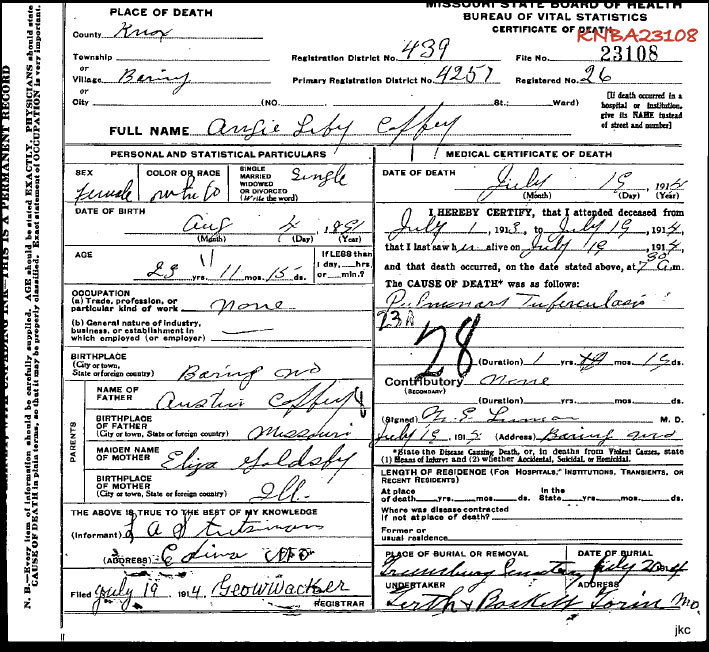 MISSOURI STATE BOARD OF HEALTH
BUREAU OF VITAL STATISTICS
CERTIFICATE OF DEATH
KNBA23108
PLACE OF DEATH
County Knox
Township
or
Village Baring
or
City (NO. St.; Ward)
Registration District No. 439
File No. 23108
Primary Registration District No. 4257
Registered No. 26
[If death occurred in a
hospital or institution,
give its NAME instead
of street and number]
FULL NAME Angie Liby Coffey
PERSONAL AND STATISTICAL PARTICULARS
SEX
Female
COLOR OR RACE
white
SINGLE
MARRIED
WIDOWED
OR DIVORCED
(Write the word)
Single
DATE OF BIRTH
Aug 4 1891
(Month) (Day) (Year)
AGE
23 yrs. 11 mos. 15 ds.
If LESS than
1 day, hrs.
or min.?
OCCUPATION
(a) Trade, profession, or
particular kind of work none
(b) General nature of industry,
business, or establishment in
which employed (or employer)
BIRTHPLACE
(City or town,
State or foreign country) Baring Mo
PARENTS
NAME OF
FATHER Austin Coffey
BIRTHPLACE
OF FATHER
(City or town, State or foreign country) Missouri
MAIDEN NAME
OF MOTHER Eliza Goldsby
BIRTHPLACE
OF MOTHER
(City or town, State or foreign country) Ill.
THE ABOVE IS TRUE TO THE BEST OF MY KNOWLEDGE
(Informant) L A Stutsman
(ADDRESS) Edina Mo
Filed July 19 1914 Geo W Wacker
REGISTRAR
MEDICAL CERTIFICATE OF DEATH
DATE OF DEATH
July 19, 1914
(Month) (Day) (Year)
I HEREBY CERTIFY, that I attended deceased from
July 1, 1913, to July 19, 1914
that I last saw her alive on July 19, 1914
and that death occurred, on the date stated above, at 7 30 a.m.
The CAUSE OF DEATH* was as follows:
Pulmonary Tuberculosis
23A
28
(Duration) 1 yrs. mos. 19 ds.
Contributory None
(SECONDARY)
(Duration) yrs. mos. ds.
(Signed) M. D.
July 19 191 (Address) Baring Mo
*State the Disease Causing Death, or, in deaths from Violent Causes, state
(1) Means of Injury; and (2) whether Accidental, Suicidal, or Homicidal.
LENGTH OF RESIDENCE (FOR HOSPITALS, INSTITUTIONS, TRANSIENTS, OR
RECENT RESIDENTS)
At place
of death yrs. mos. ds.
In the
State yrs. mos. ds.
Where was disease contracted
if not at place of death?
Former or
usual residence
PLACE OF BURIAL OR REMOVAL
Greensburg Cemetery
DATE OF BURIAL
July 20 1914
UNDERTAKER
Baskett
ADDRESS
Gorin Mo.
N. B.—Every item of information should be carefully supplied. AGE should be stated EXACTLY. PHYSICIANS should state
CAUSE OF DEATH in plain terms, so that it may be properly classified. Exact statement of OCCUPATION is very important.
UNFADING INK—THIS IS A PERMANENT RECORD
jkc